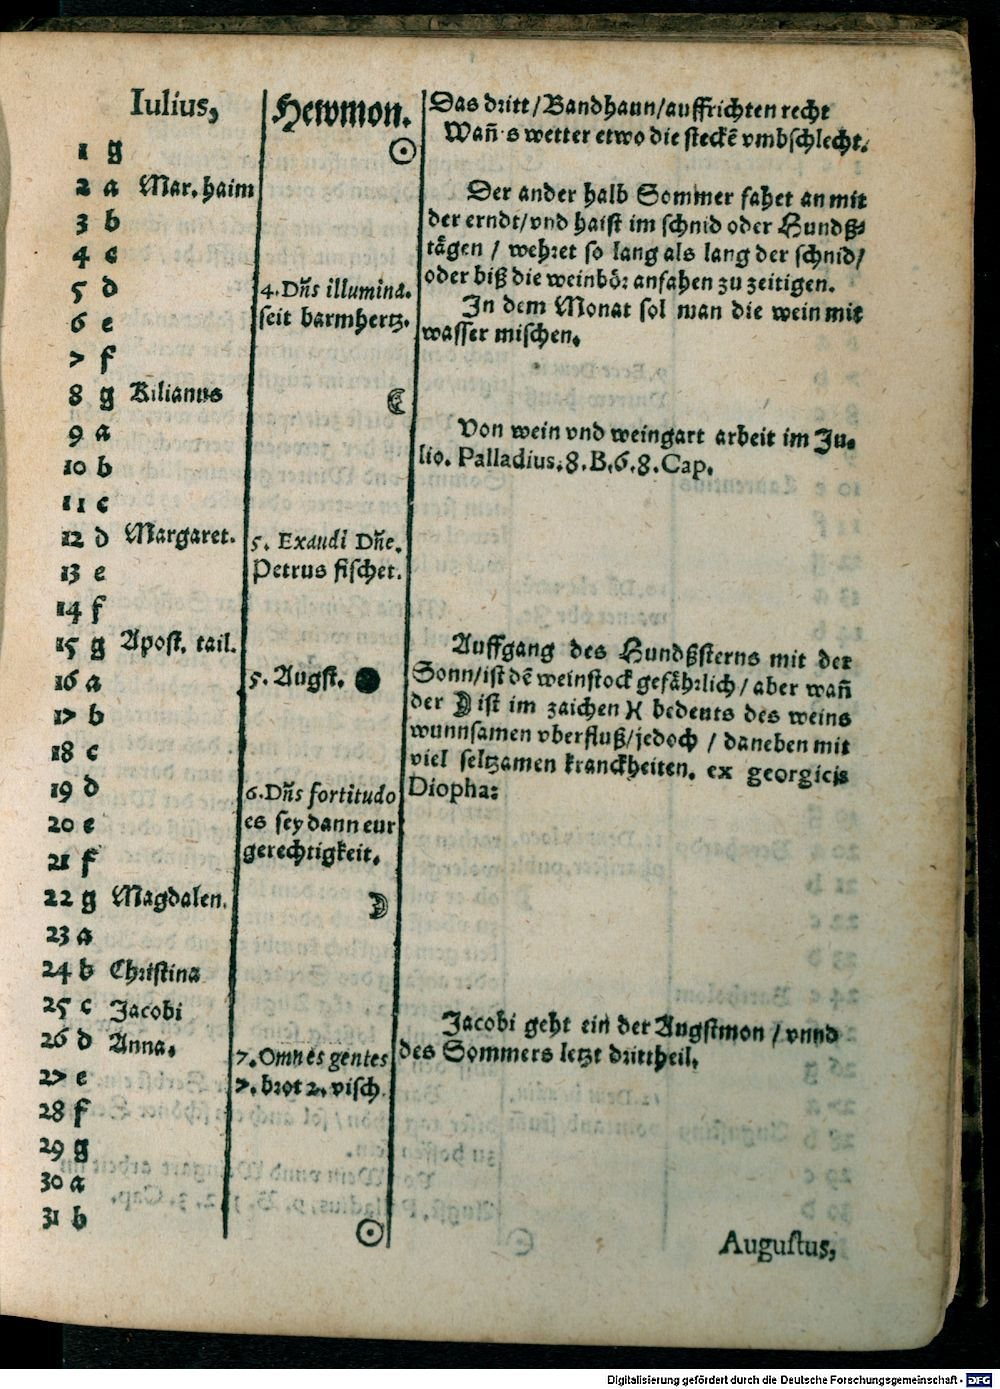 Iulius,
1 g
2 a Mar. haim
3 b
4 c
5 d
6 e
7 f
8 g Kilianus
9 a
10 b
11 c
12 d Margaret.
13 e
14 f
15 g Apost. tail.
16 a
17 b
18 c
19 d
20 e
21 f
22 g Magdalen.
23 a
24 b Christina
25 c Jacobi
26 d Anna.
27 e
28 f
29 g
30 a
31 b
Hewmon.
☉
4. Dn̄s illumina.
seit barmhertz.
☾
5. Exaudi Dn̄e.
Petrus fischet.
5. Augst. ●
6. Dn̄s fortitudo
es sey dann eur
gerechtigkeit.
☽
7. Omnes gentes
7. brot 2. visch.
☉
Das dritt/Bandhaun/auffrichten recht
Wan̄ s wetter etwo die steckē vmbschlecht.
Der ander halb Sommer fahet an mit
der erndt/vnd haist im schnid oder Hundß⸗
tågen / wehret so lang als lang der schnid/
oder biß die weinbôr anfahen zu zeitigen.
In dem Monat sol man die wein mit
wasser mischen.
Von wein vnd weingart arbeit im Ju⸗
lio. Palladius. 8. B. 6. 8. Cap.
Auffgang des Hundßsterns mit der
Sonn/ist dē weinstock gefåhrlich/aber wan̄
der ☽ ist im zaichen ♓ bedeuts des weins
wunnsamen vberfluß/jedoch / daneben mit
viel seltzamen kranckheiten. ex georgicis
Diopha:
Jacobi geht ein der Augstmon / vnnd
des Sommers letzt drittheil.
Augustus,
Digitalisierung gefördert durch die Deutsche Forschungsgemeinschaft - DFG